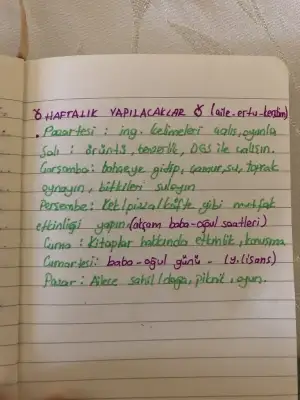 HAFTALIK YAPILACAKLAR (aile-ertu-kendim)
. Pazartesi : ing. kelimeleri çalış, oyunla
Salı : örüntü, tekerlek, DGS ile çalışın.
Çarşamba: bahçeye gidip, çamur, su, toprak
oynayın, bitkileri sulayın
Perşembe: Kek/pizza/köfte gibi mutfak
etkinliği yapın (akşam baba-oğul saatleri)
Cuma : Kitaplar hakkında etkinlik, konuşma
Cumartesi: baba-oğul günü - (y.lisans)
Pazar : Ailece sahil/doğa, piknik, oyun.